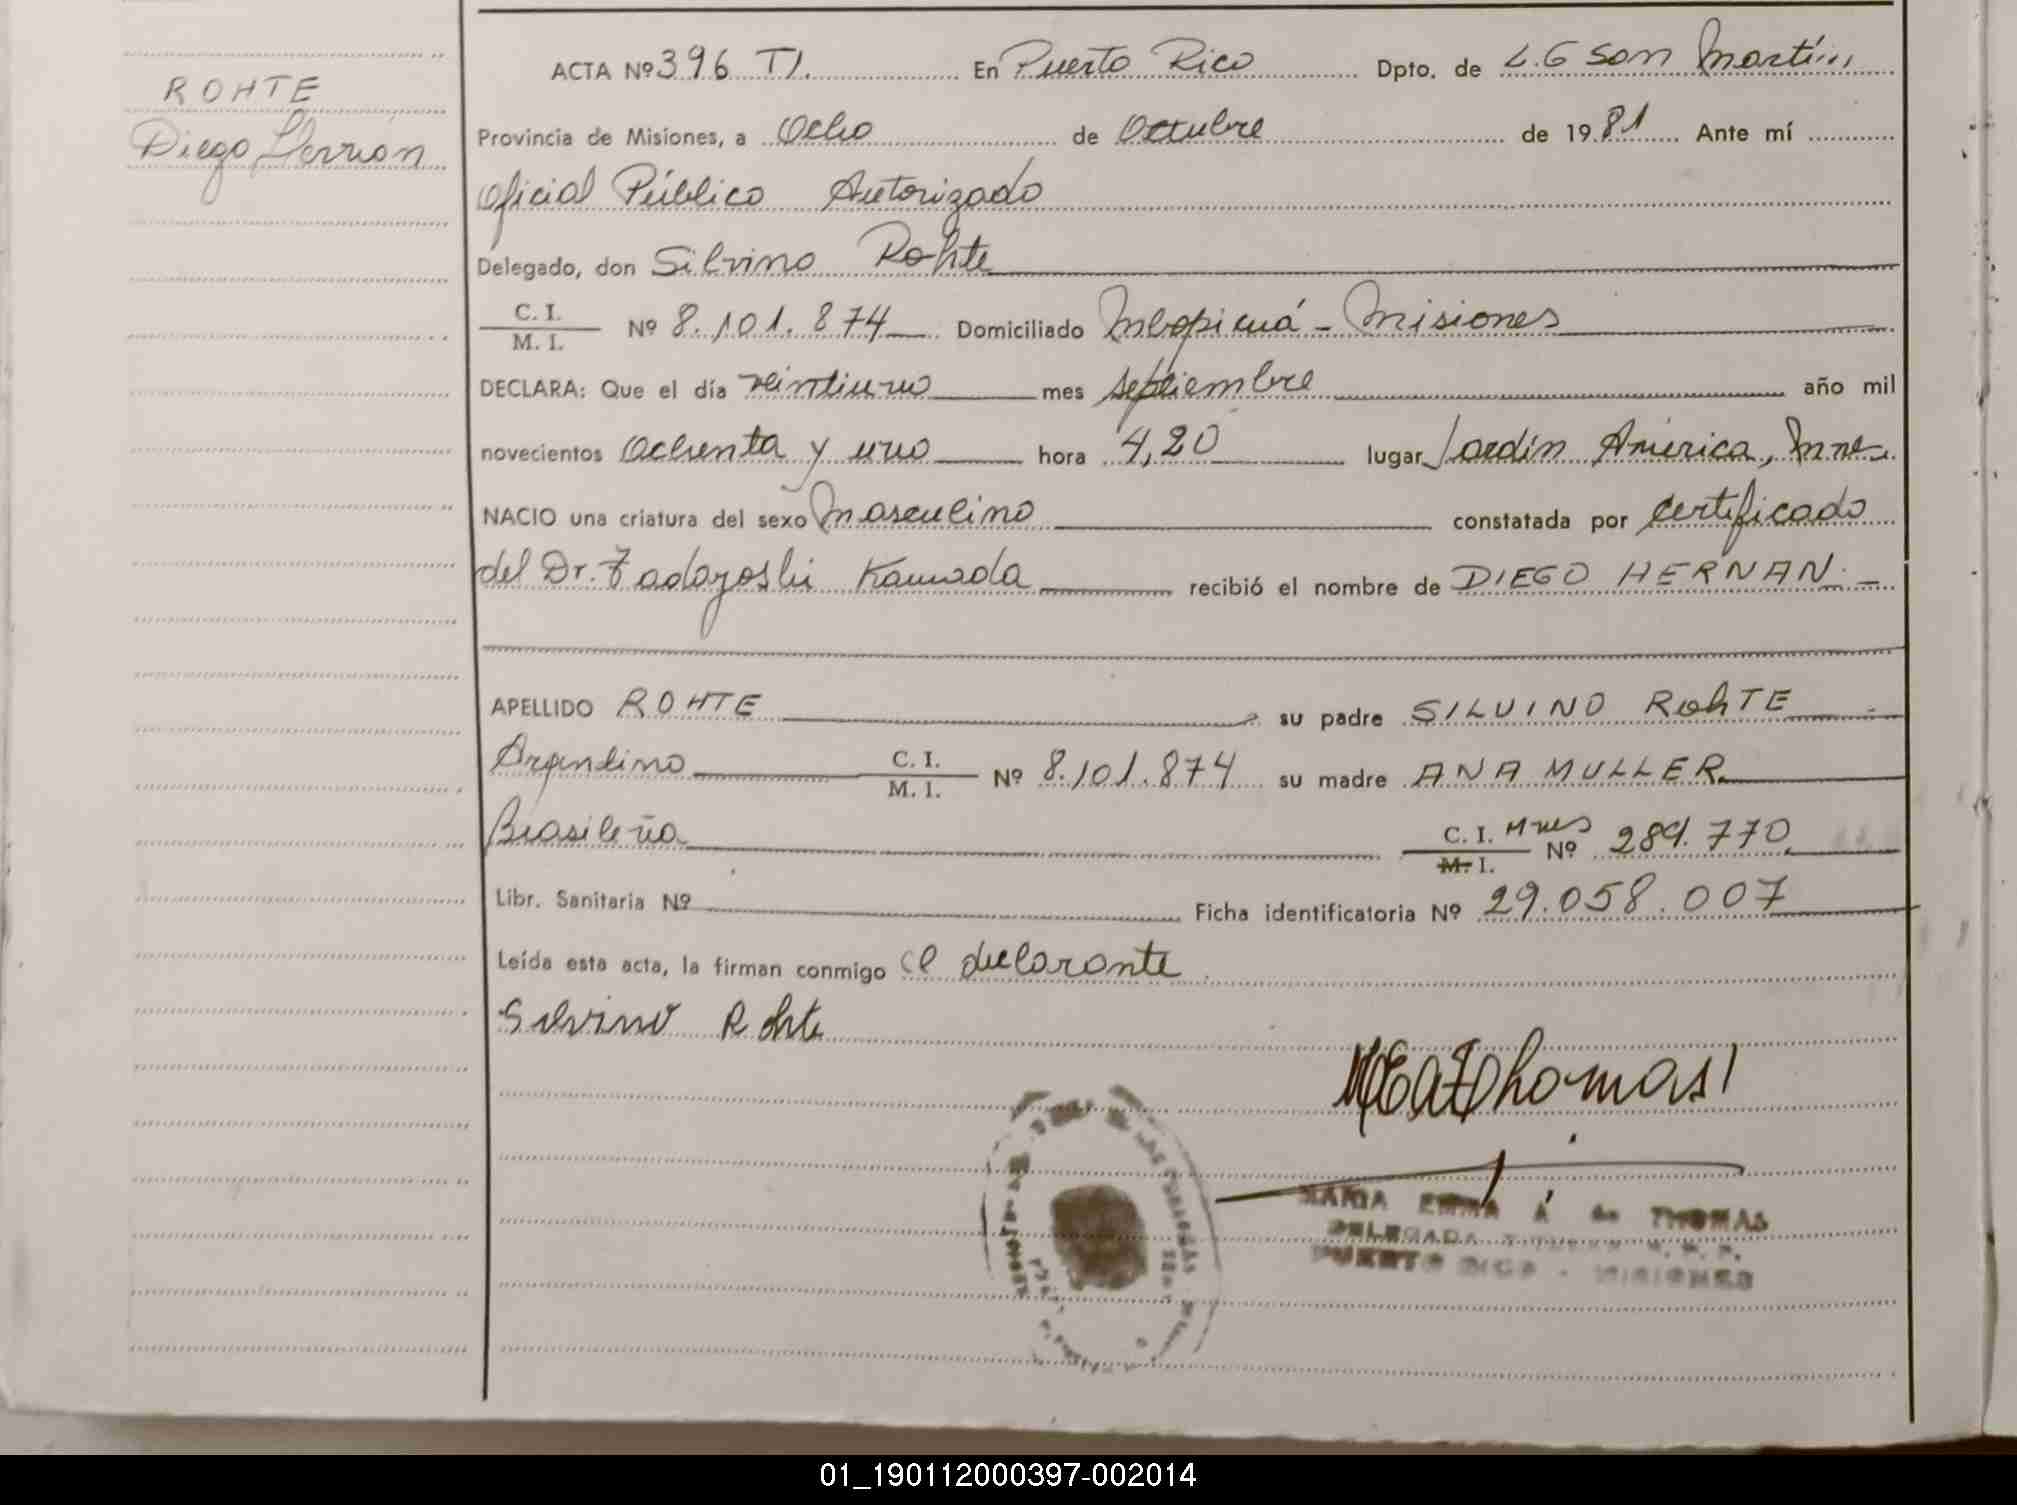 ROHTE
Diego Hernán
ACTA Nº 396 TI. En Puerto Rico Dpto. de L.G San Martín
Provincia de Misiones, a Ocho de Octubre de 1981 Ante mí
Oficial Público Autorizado
Delegado, don Silvino Rohte
C. I. / M. I. Nº 8.101.874 Domiciliado Mbopicuá - Misiones
DECLARA: Que el día veintiuno mes septiembre año mil
novecientos Ochenta y uno hora 4,20 lugar Jardín América, Mnes.
NACIO una criatura del sexo Masculino constatada por certificado
del Dr. Tadayoshi Kamada recibió el nombre de DIEGO HERNAN.-
APELLIDO ROHTE su padre SILVINO RohTE
Argentino C. I. / M. I. Nº 8.101.874 su madre ANA MULLER
Brasileña C. I. Mnes / M. I. Nº 289.770
Libr. Sanitaria Nº Ficha identificatoria Nº 29.058.007
Leída esta acta, la firman conmigo el declarante
Silvino Rohte
MARIA EMMA A de THOMAS
DELEGADA
PUERTO RICO - MISIONES
01_190112000397-002014